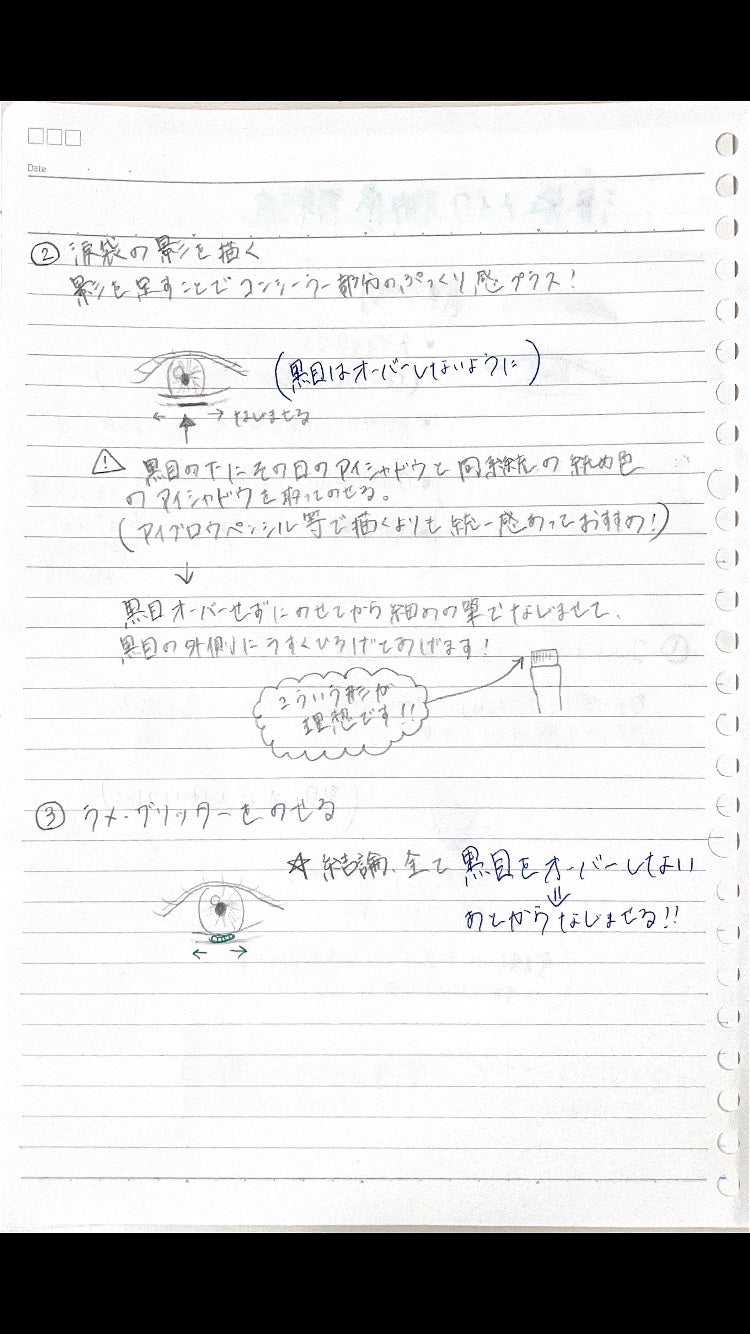 Date
② 涙袋の影を描く
影を足すことでコンシーラー部分のぷっくり感プラス!
(黒目はオーバーしないように)
← → なじませる
黒目の下にその日のアイシャドウと同系統の締め色
のアイシャドウを取ってのせる。
(アイブロウペンシル等で描くよりも統一感あっておすすめ!)
↓
黒目オーバーせずにのせてから細めの筆でなじませて、
黒目の外側にうすくひろげてあげます!
こういう形が
理想です!!
③ ラメ・グリッターをのせる
☆ 結論、全て 黒目をオーバーしない
⇓
あとからなじませる!!
← →